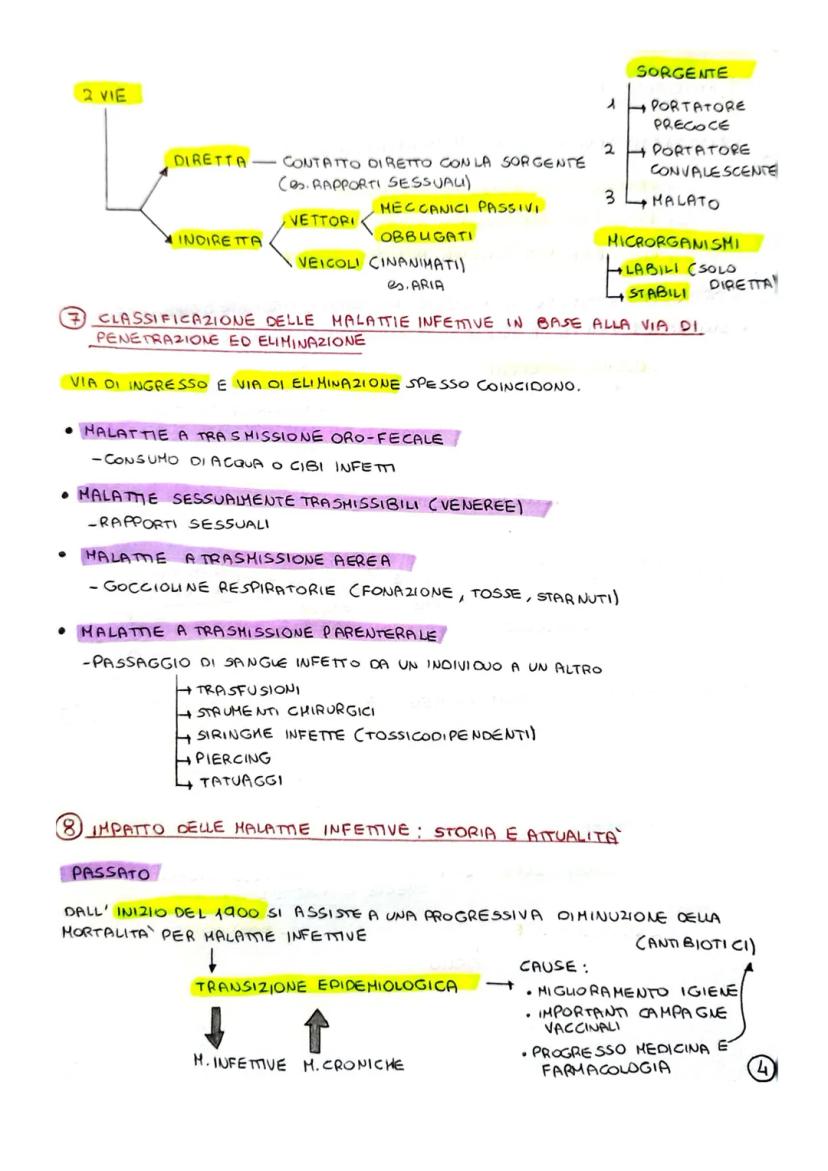 2 VIE
DIRETTA — CONTATTO DIRETTO CON LA SORGENTE
(es. RAPPORTI SESSUALI)
INDIRETTA
VETTORI
MECCANICI PASSIVI
OBBLIGATI
VEICOLI (INANIMATI)
es. ARIA
SORGENTE
1 → PORTATORE
PRECOCE
2 → PORTATORE
CONVALESCENTE
3 → MALATO
MICRORGANISMI
→ LABILI (SOLO
DIRETTA)
→ STABILI
7 CLASSIFICAZIONE DELLE MALATTIE INFETTIVE IN BASE ALLA VIA DI
PENETRAZIONE ED ELIMINAZIONE
VIA DI INGRESSO E VIA DI ELIMINAZIONE SPESSO COINCIDONO.
• MALATTIE A TRASMISSIONE ORO-FECALE
- CONSUMO DI ACQUA O CIBI INFETTI
• MALATTIE SESSUALMENTE TRASMISSIBILI (VENEREE)
- RAPPORTI SESSUALI
• MALATTIE A TRASMISSIONE AEREA
- GOCCIOLINE RESPIRATORIE (FONAZIONE, TOSSE, STARNUTI)
• MALATTIE A TRASMISSIONE PARENTERALE
- PASSAGGIO DI SANGUE INFETTO DA UN INDIVIDUO A UN ALTRO
→ TRASFUSIONI
→ STRUMENTI CHIRURGICI
→ SIRINGHE INFETTE (TOSSICODIPENDENTI)
→ PIERCING
→ TATUAGGI
8 IMPATTO DELLE MALATTIE INFETTIVE: STORIA E ATTUALITA'
PASSATO
DALL' INIZIO DEL 1900 SI ASSISTE A UNA PROGRESSIVA DIMINUZIONE DELLA
MORTALITA' PER MALATTIE INFETTIVE
(ANTIBIOTICI)
TRANSIZIONE EPIDEMIOLOGICA → CAUSE:
• MIGLIORAMENTO IGIENE
• IMPORTANTI CAMPAGNE
VACCINALI
• PROGRESSO MEDICINA E
FARMACOLOGIA
M. INFETTIVE M. CRONICHE
4